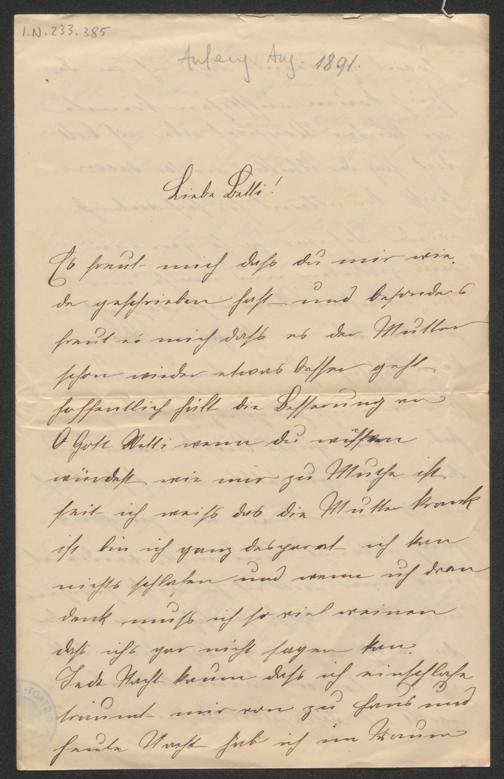 I.N. 233.385
Anfang Aug 1891.
Liebe Betti!
Es freut mich daß du mir wie¬
de geschrieben hast und besonders
freut es mich daß es der Mutter
schon wieder etwas besser geht
hoffentlich hält die Besserung an
O Gott Betti wenn du wüssten
würdest wie mir zu Muthe ist
seit ich weiß das die Mutter krank
ist bin ich ganz desparat ich kan
nichts schlafen und wenn ich dran
denk muß ich so viel weinen
daß ichs gar nicht sagen kan.
Jede Nacht kaum daß ich einschlafe
träumt mir von zu Haus und
heute Nacht hab ich im Traum